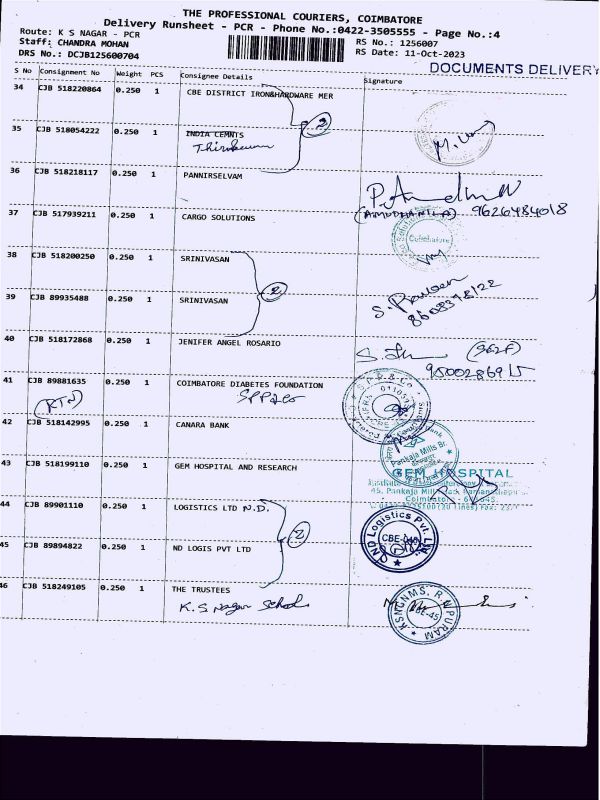 THE PROFESSIONAL COURIERS, COIMBATORE
Delivery Runsheet - PCR - Phone No.:0422-3505555 - Page No.:4
Route: K S NAGAR - PCR
Staff: CHANDRA MOHAN
RS No.: 1256007
DRS No.: DCJB125600704
RS Date: 11-Oct-2023
DOCUMENTS DELIVERY
S No Consignment No Weight PCS Consignee Details Signature
34 CJB 518220864 0.250 1 CBE DISTRICT IRON&HARDWARE MER
2
35 CJB 518054222 0.250 1 INDIA CEMNTS
36 CJB 518218117 0.250 1 PANNIRSELVAM
9626484018
37 CJB 517939211 0.250 1 CARGO SOLUTIONS
Coimbatore
38 CJB 518200250 0.250 1 SRINIVASAN
2
S. Praveen
39 CJB 89935488 0.250 1 SRINIVASAN
8608378122
40 CJB 518172868 0.250 1 JENIFER ANGEL ROSARIO
41 CJB 89881635 0.250 1 COIMBATORE DIABETES FOUNDATION
(RTN)
42 CJB 518142995 0.250 1 CANARA BANK
Pankaja Mills Br.
43 CJB 518199110 0.250 1 GEM HOSPITAL AND RESEARCH
GEM HOSPITAL
45, Pankaja Mill
Coimbatore
44 CJB 89901110 0.250 1 LOGISTICS LTD N.D.
2
45 CJB 89894822 0.250 1 ND LOGIS PVT LTD
ND Logistics Pvt. Ltd.
CBE-045
46 CJB 518249105 0.250 1 THE TRUSTEES
K.S Nagar School
KSNGNMS. R.N.PURAM
CBE-45